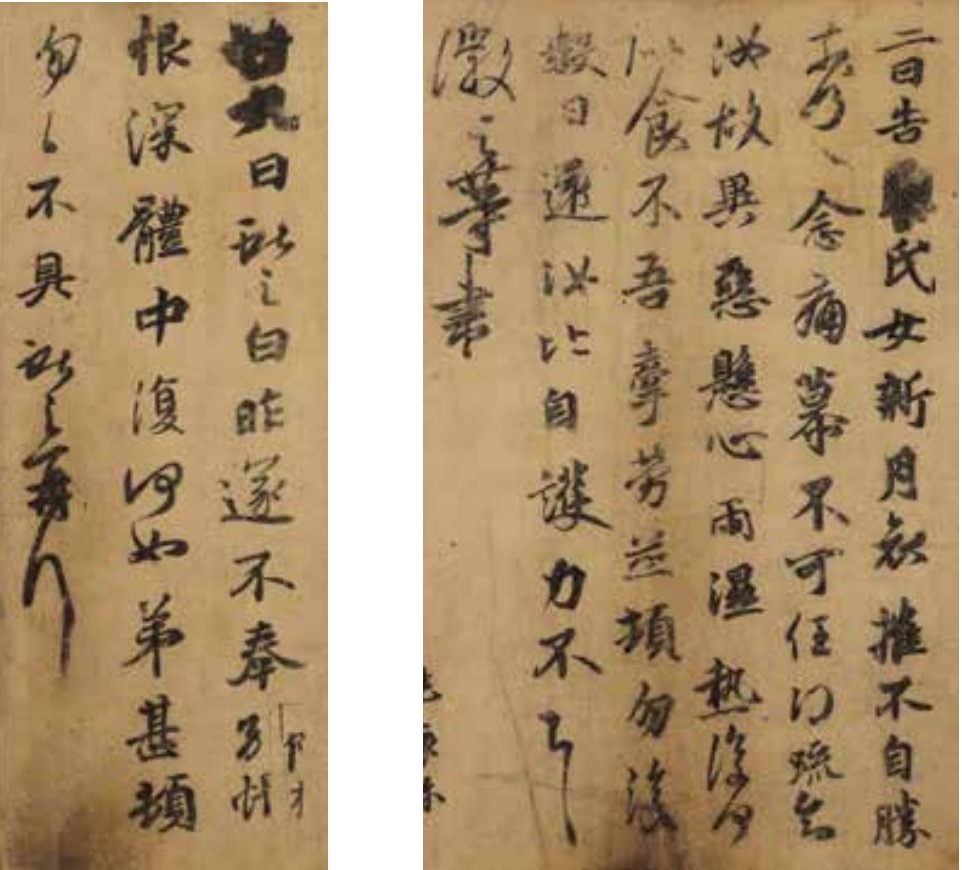 二日告氏女新月哀摧不自勝
奈何〻念痛慕不可任得疏知
汝故異惡懸心雨濕熱復何
似食不吾牽勞並頓勿復
數日還汝比自護力不具
徽之等書
廿九日獻之白昨遂不奉別悵
恨深體中復何如弟甚頓
勿〻不具獻之再拜